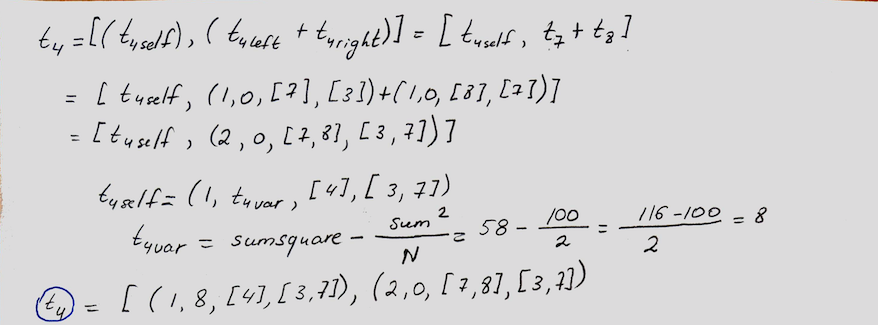 t₄ = [(t₄self), (t₄left + t₄right)] = [t₄self, t₇ + t₈]
= [t₄self, (1,0,[7],[3])+(1,0,[8],[7])]
= [t₄self, (2,0,[7,8],[3,7])]
t₄self = (1, t₄var, [4], [3,7])
t₄var = sumsquare − Sum²/N = 58 − 100/2 = 116−100/2 = 8
t₄ = [(1,8,[4],[3,7]), (2,0,[7,8],[3,7])